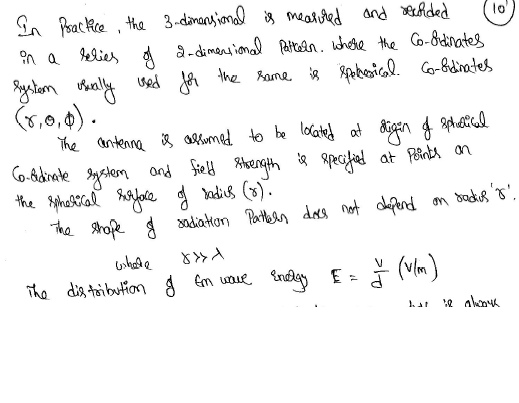 In Practice, the 3-dimensional is measured and recorded (10)
in a series of 2-dimensional Pattern. where the Co-Ordinates
system usually used for the same is spherical. Co-Ordinates
(r, θ, ϕ).
The antenna is assumed to be located at origin of spherical
Co-Ordinate system and field strength is specified at Points on
the spherical surface of radius (r).
The shape of radiation Pattern does not depend on radius 'r'.
where r>>λ
The distribution of Em wave Energy E = V/d (V/m)
is always